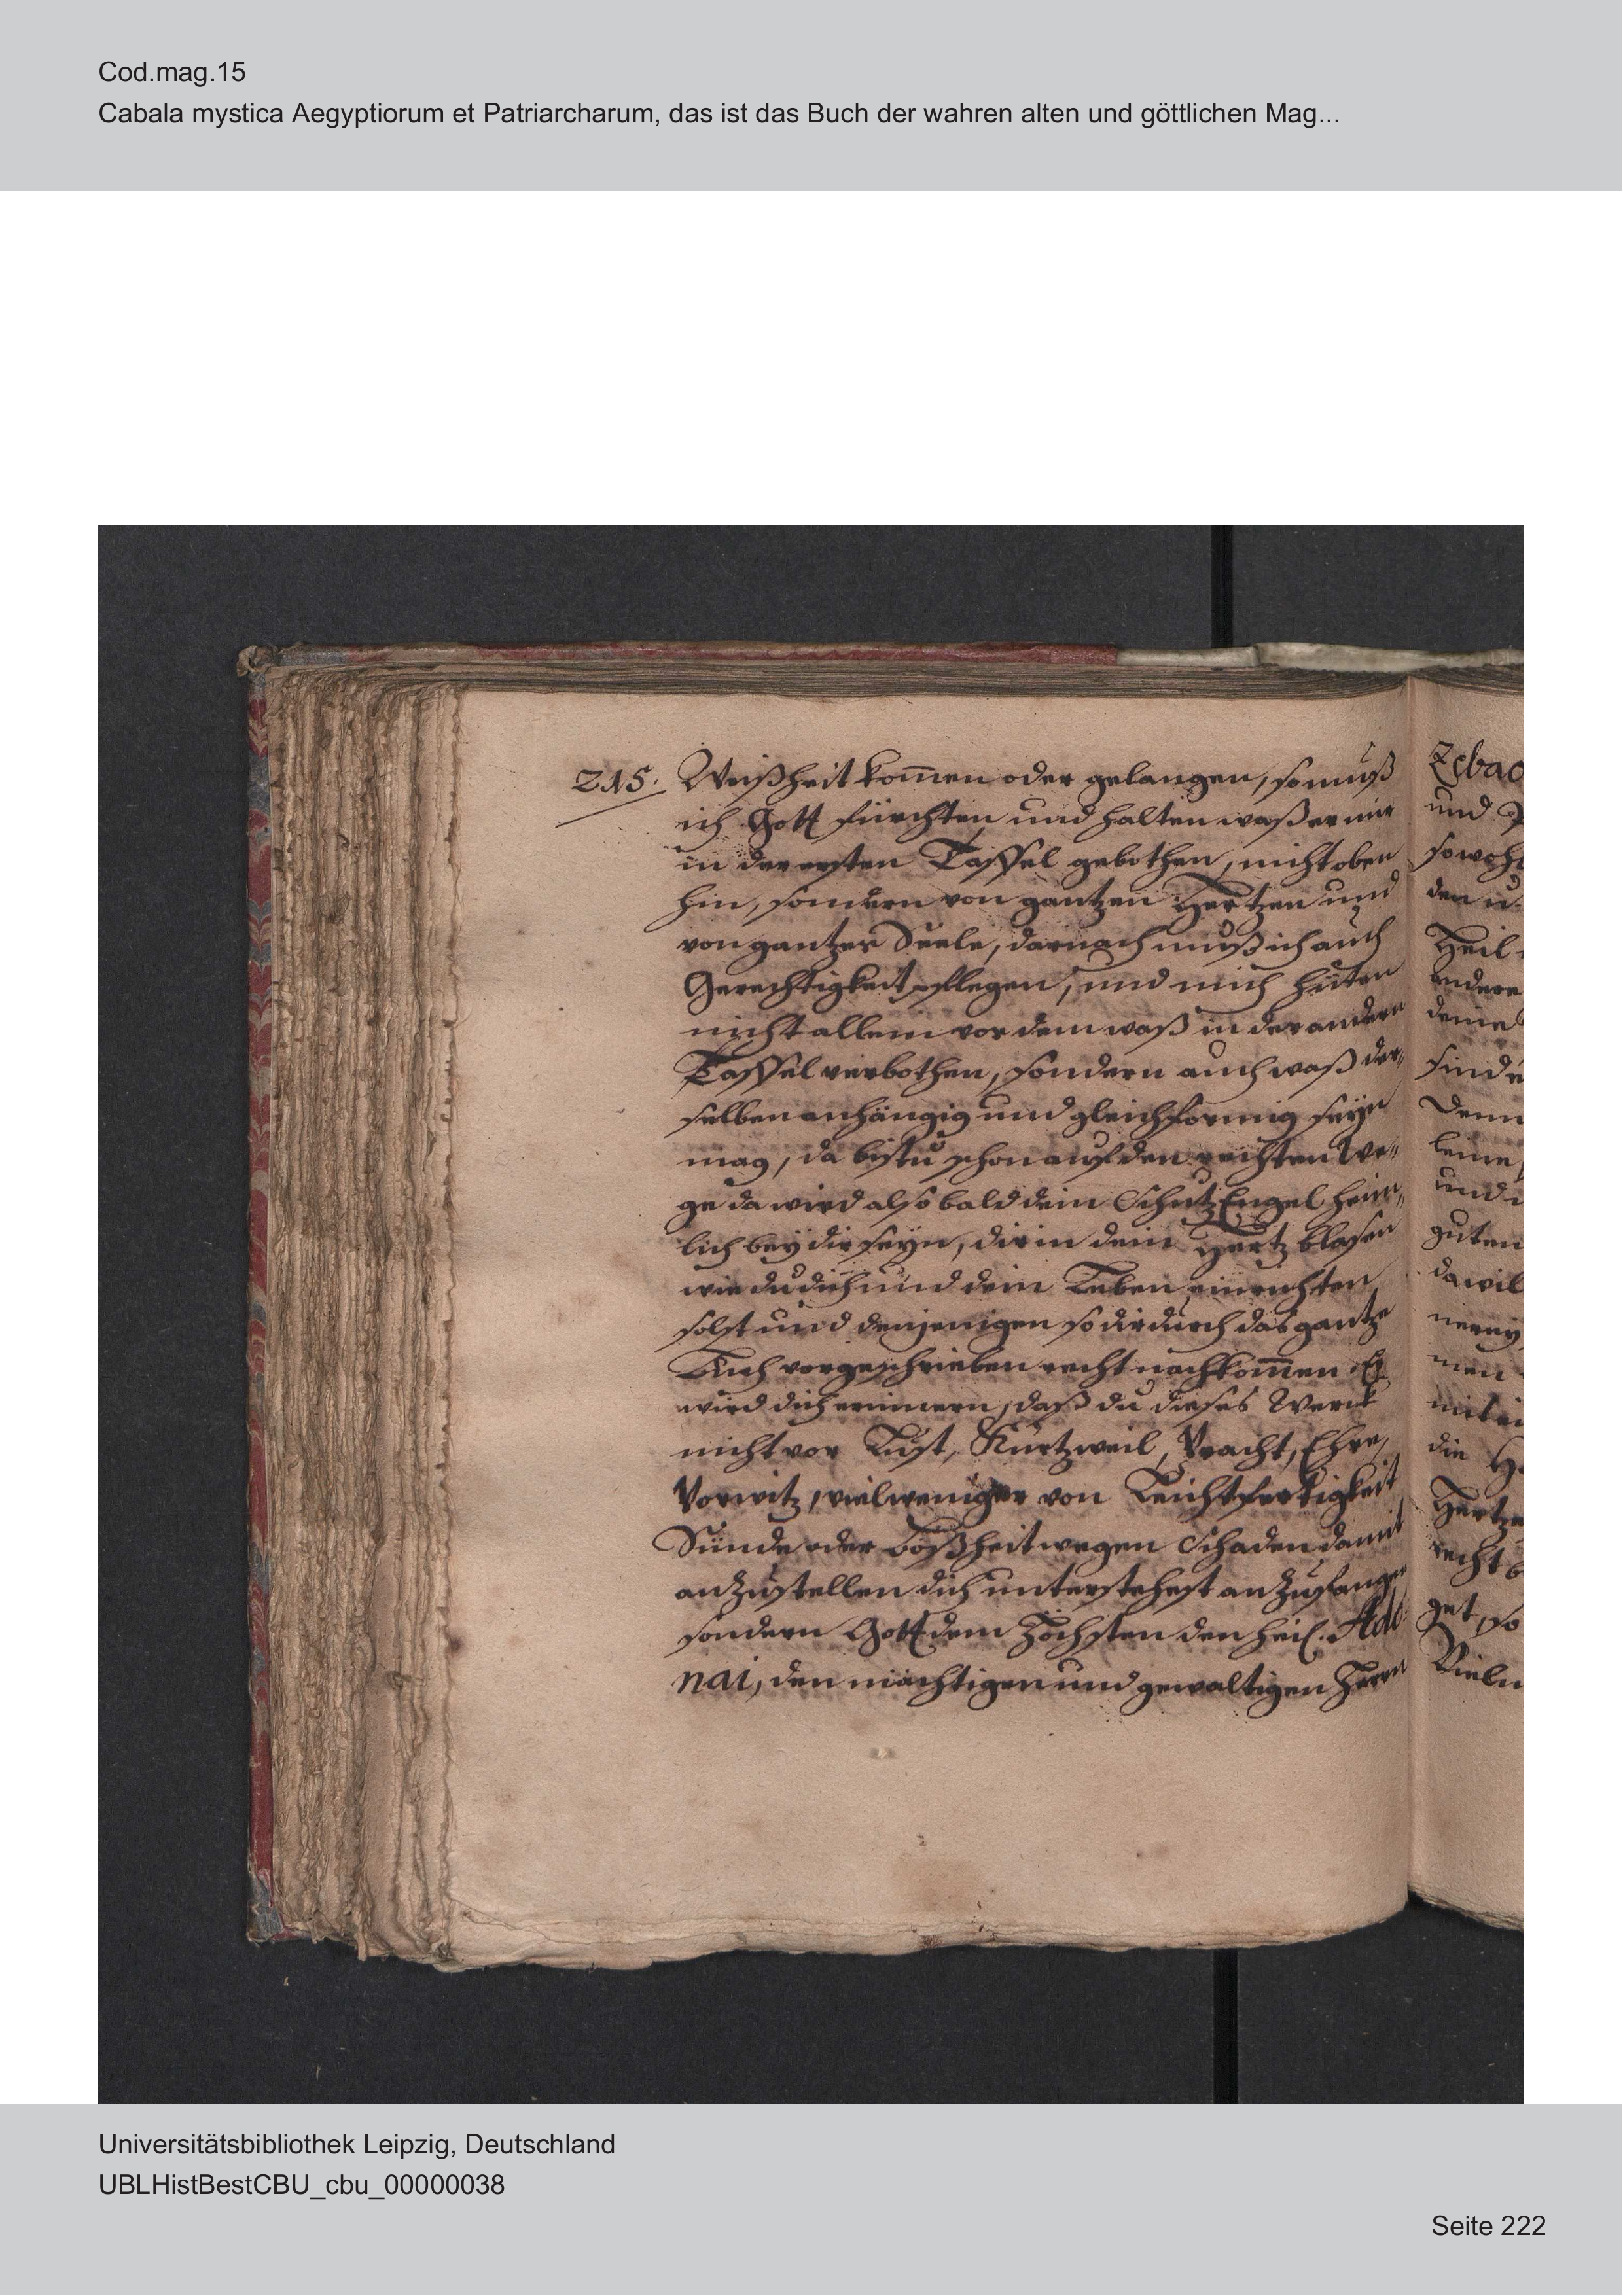 Cod.mag.15
Cabala mystica Aegyptiorum et Patriarcharum, das ist das Buch der wahren alten und göttlichen Mag...
215. Weißheit kom̄en oder gelangen, so muß
ich Gott fürchten und halten waß er mir
in der ersten Taffel gebothen, nicht oben
hin, sondern von gantzen Hertzen und
von gantzer Seele, darnach muß ich auch
Gerechtigkeit pflegen, und mich hüten
nicht allein vor dem waß in der andern
Taffel verbothen, sondern auch waß der„
selben anhängig und gleichformig seyn
mag, da bistu schon auf den rechten We„
ge da wird also bald dein Schutz Engel heim„
lich bey dir seyn, dir in dein Hertz blasen
wie du dich und dein Leben einrichten
solst und denjenigen so dir durch das gantze
Buch vorgeschrieben recht nachkom̄en Er
wird dich erinnern, daß du dieses Werck
nicht vor Lust, Kurtzweil, Pracht, Ehre,
Vorwitz, vielweniger von Leichtfertigkeit
Sünde oder boßheit wegen Schaden damit
anzustellen dich unterstehest anzufangen
sondern Gott dem Höchsten den heil. Ado
nai, den mächtigen und gewaltigen Herrn
Zebao
und
sowohl
den u.
Heil
andere
deine
finde
Denn
leine
und
guten
da wil
men
mit
die
Hertze
recht b
get, so
Vielm
Universitätsbibliothek Leipzig, Deutschland
UBLHistBestCBU_cbu_00000038
Seite 222